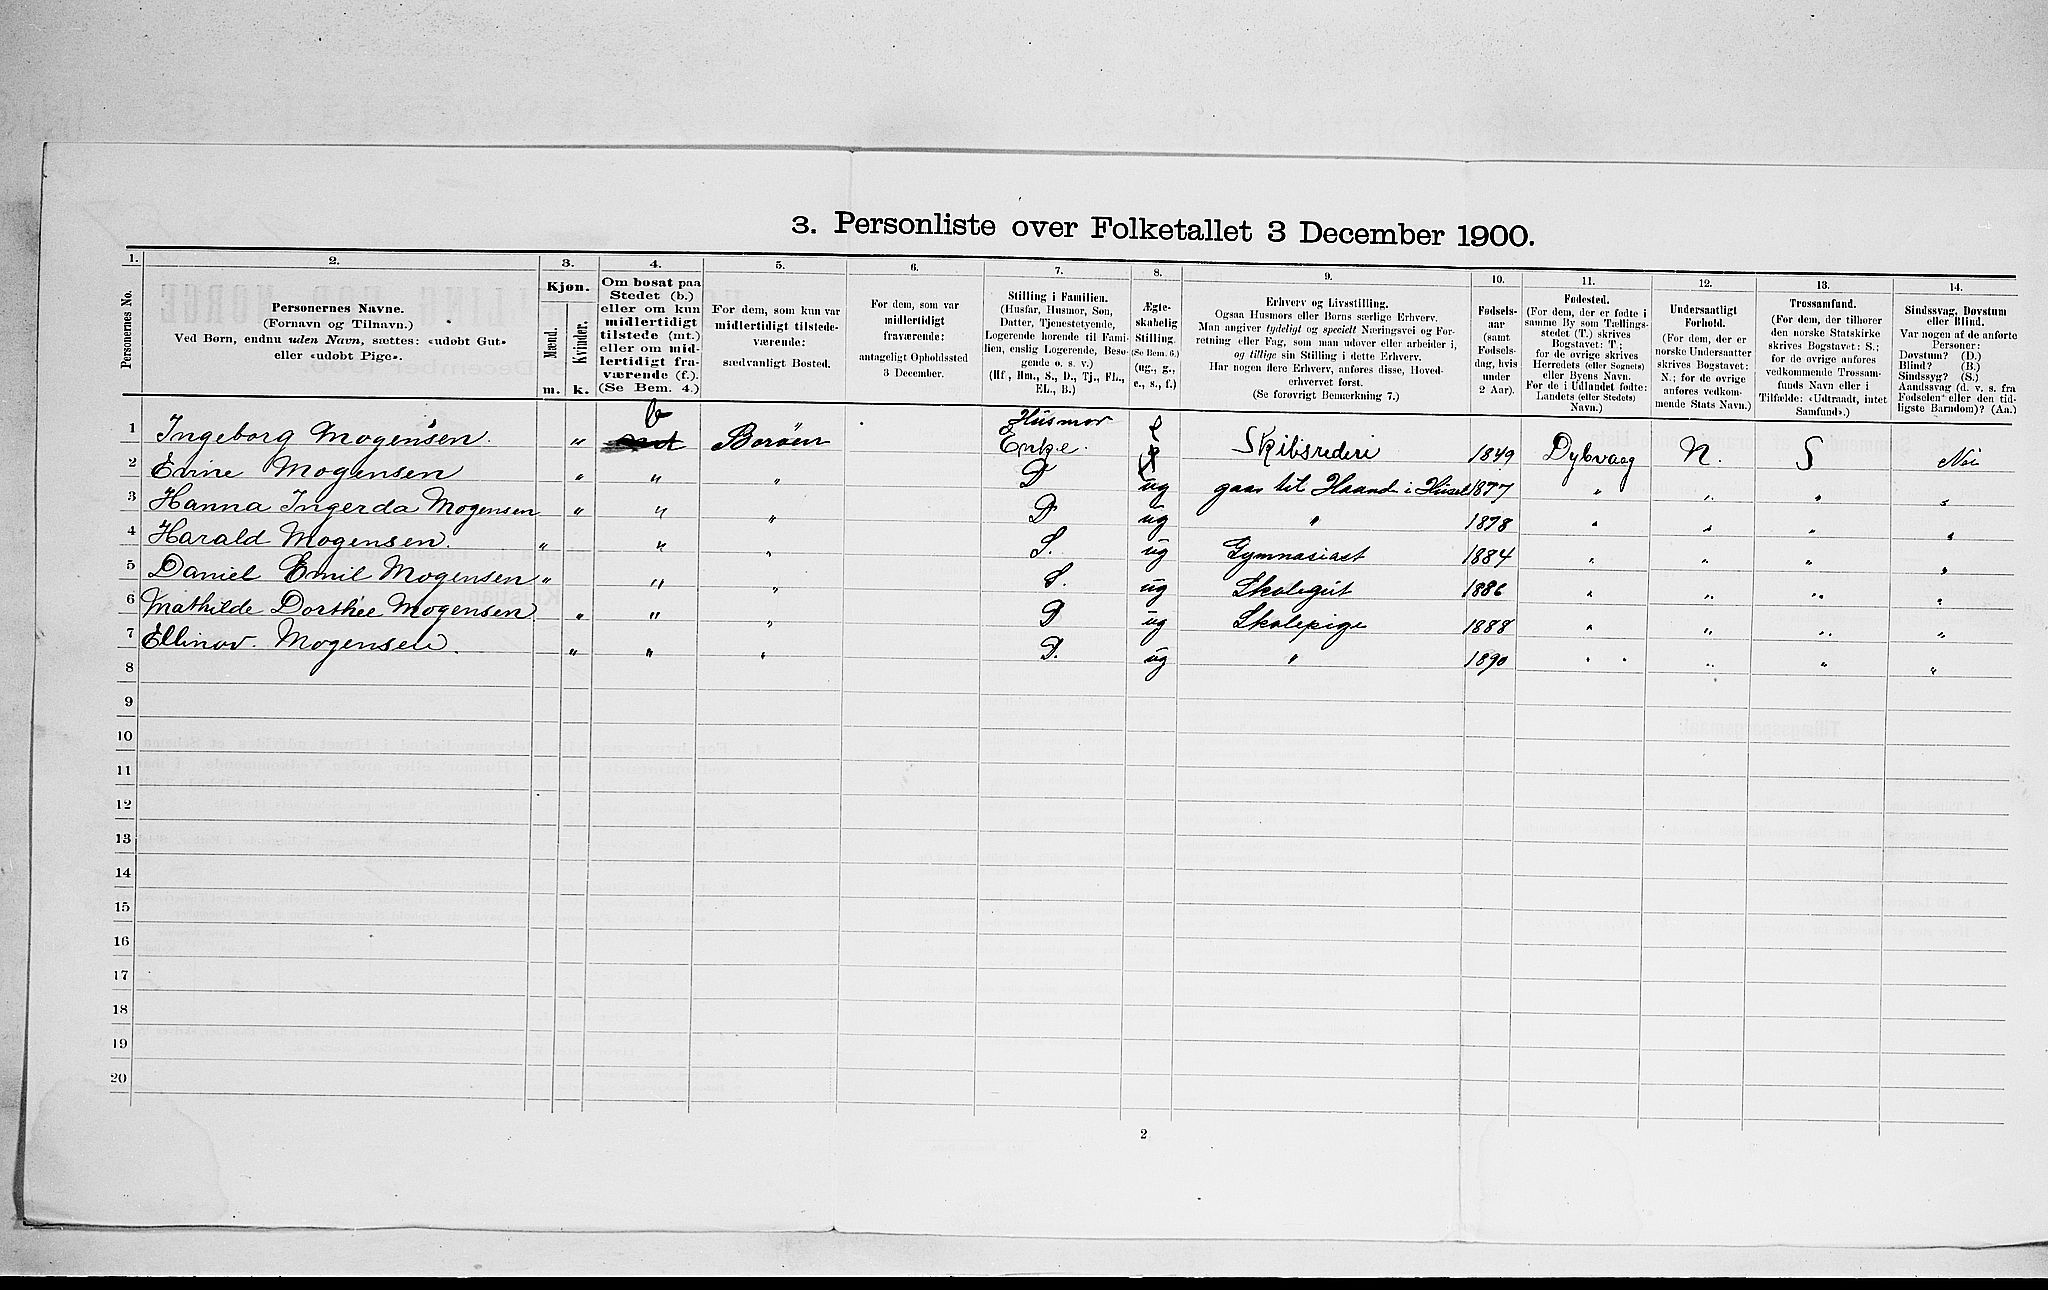 3. Personliste over Folketallet 3 December 1900.
1. 2. 3. 4. 5. 6. 7. 8. 9. 10. 11. 12. 13. 14.
Personernes No.
Personernes Navne.
(Fornavn og Tilnavn.)
Ved Børn, endnu uden Navn, sættes: «udøbt Gut»
eller «udøbt Pige».
Kjøn.
Mænd.
Kvinder.
m. k.
Om bosat paa
Stedet (b.)
eller om kun
midlertidigt
tilstede (mt.)
eller om mid-
lertidigt fra-
værende (f.).
(Se Bem. 4.)
For dem, som kun var
midlertidigt tilstede-
værende:
sædvanligt Bosted.
For dem, som var
midlertidigt
fraværende:
antageligt Opholdssted
3 December.
Stilling i Familien.
(Husfar, Husmor, Søn,
Datter, Tjenestetyende,
Logerende hørende til Fami-
lien, enslig Logerende, Besø-
gende o. s. v.)
(Hf., Hm., S., D., Tj., FL.,
EL., B.)
Ægte-
skabelig
Stilling.
(Se Bem. 6.)
(ug., g.,
e., s., f.)
Erhverv og Livsstilling.
Ogsaa Husmors eller Børns særlige Erhverv.
Man angiver tydeligt og specielt Næringsvei og For-
retning eller Fag, som man udøver eller arbeider i,
og tillige sin Stilling i dette Erhverv.
Har nogen flere Erhverv, anføres disse, Hoved-
erhvervet først.
(Se forøvrigt Bemærkning 7.)
Fødsels-
aar
(samt
Fødsels-
dag, hvis
under
2 Aar).
Fødested.
(For dem, der er fødte i
samme By som Tællings-
stedet (T.) skrives
Bogstavet: T;
for de øvrige skrives
Herredets (eller Sognets)
eller Byens Navn.
For de i Udlandet fødte:
Landets (eller Stedets)
Navn.)
Undersaatligt
Forhold.
(For dem, der er
norske Undersaatter
skrives Bogstavet:
N.; for de øvrige
anføres vedkom-
mende Stats Navn.)
Trossamfund.
(For dem, der tilhører
den norske Statskirke
skrives Bogstavet: S.;
for de øvrige anføres
vedkommende Trossam-
funds Navn eller i
Tilfælde: «Udtraadt, intet
Samfund».)
Sindssvag, Døvstum
eller Blind.
Var nogen af de anførte
Personer:
Døvstum? (D.)
Blind? (B.)
Sindssyg? (S.)
Aandssvag (d. v. s. fra
Fødselen eller den tid-
ligste Barndom)? (Aa.)
1 Ingeborg Mogensen. " b Borøen Husmor Enke. e Skibsrederi 1849 Dybvaag N. S Nei
2 Emine Mogensen " " " D ug gaar til Haande i Huset 1877 " " " "
3 Hanna Ingerda Mogensen " " " D ug " 1878 " " " "
4 Harald Mogensen. " " " S. ug Gymnasiast 1884 " " " "
5 Daniel Emil Mogensen " " " S. ug Skolegut 1886 " " " "
6 Mathilde Dorthee Mogensen " " " D ug Skolepige 1888 " " " "
7 Ellinor. Mogensen. " " " D. ug " 1890 " " " "
8
9
10
11
12
13
14
15
16
17
18
19
20
2